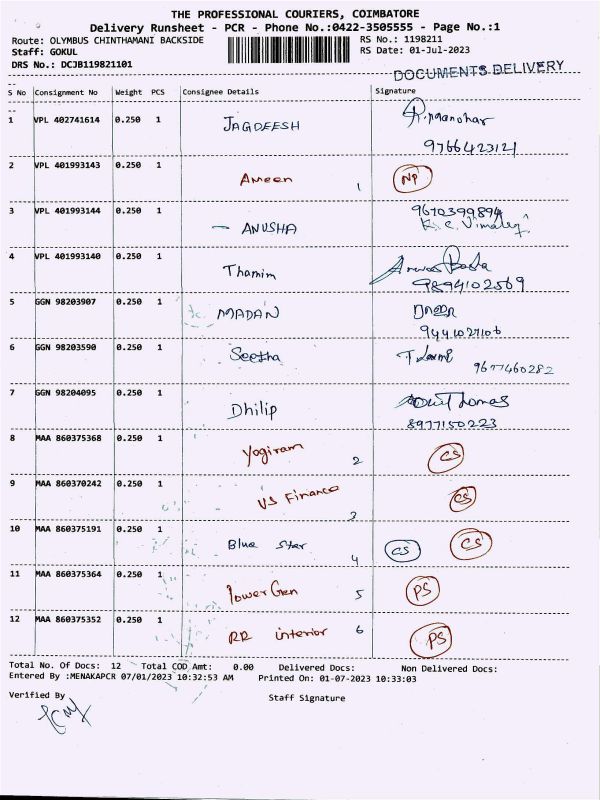 THE PROFESSIONAL COURIERS, COIMBATORE
Delivery Runsheet - PCR - Phone No.:0422-3505555 - Page No.:1
Route: OLYMBUS CHINTHAMANI BACKSIDE RS No.: 1198211
Staff: GOKUL RS Date: 01-Jul-2023
DRS No.: DCJB119821101
DOCUMENTS DELIVERY
S No Consignment No Weight PCS Consignee Details Signature
1 VPL 402741614 0.250 1 JAGDEESH
9766423121
2 VPL 401993143 0.250 1 Ameen 1 NP
3 VPL 401993144 0.250 1 - ANUSHA 9670399894
K. C. Vimala
4 VPL 401993140 0.250 1 Thamim
9894102569
5 GGN 98203907 0.250 1 MADAN
9441027106
6 GGN 98203590 0.250 1 Seetha
9677460282
7 GGN 98204095 0.250 1 Dhilip Thomas
8977150223
8 MAA 860375368 0.250 1 Yogiram 2 CS
9 MAA 860370242 0.250 1 VS Finance 3 CS
10 MAA 860375191 0.250 1 Blue Star 4 CS CS
11 MAA 860375364 0.250 1 PowerGen 5 PS
12 MAA 860375352 0.250 1 RR interior 6 PS
Total No. Of Docs: 12 Total COD Amt: 0.00 Delivered Docs: Non Delivered Docs:
Entered By :MENAKAPCR 07/01/2023 10:32:53 AM Printed On: 01-07-2023 10:33:03
Verified By Staff Signature